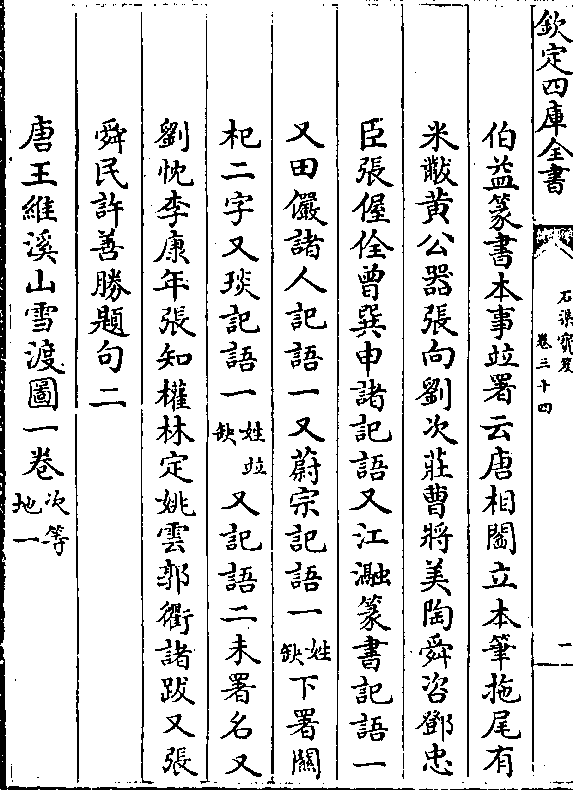 欽定四庫全書
石渠寶笈
卷三十四
二
伯益篆書本事竝署云唐相閻立本筆拖尾有
米黻黄公器張向劉次莊曹將美陶舜咨鄧忠
臣張偓佺曾巽申諸記語又江瀜篆書記語一
又田儼諸人記語一又蔚宗記語一姓缺下署關
杞二字又琰記語一姓竝缺又記語二未署名又
劉忱李康年張知權林定姚雲郭衢諸跋又張
舜民許善勝題句二
唐王維溪山雪渡圖一卷次等地一